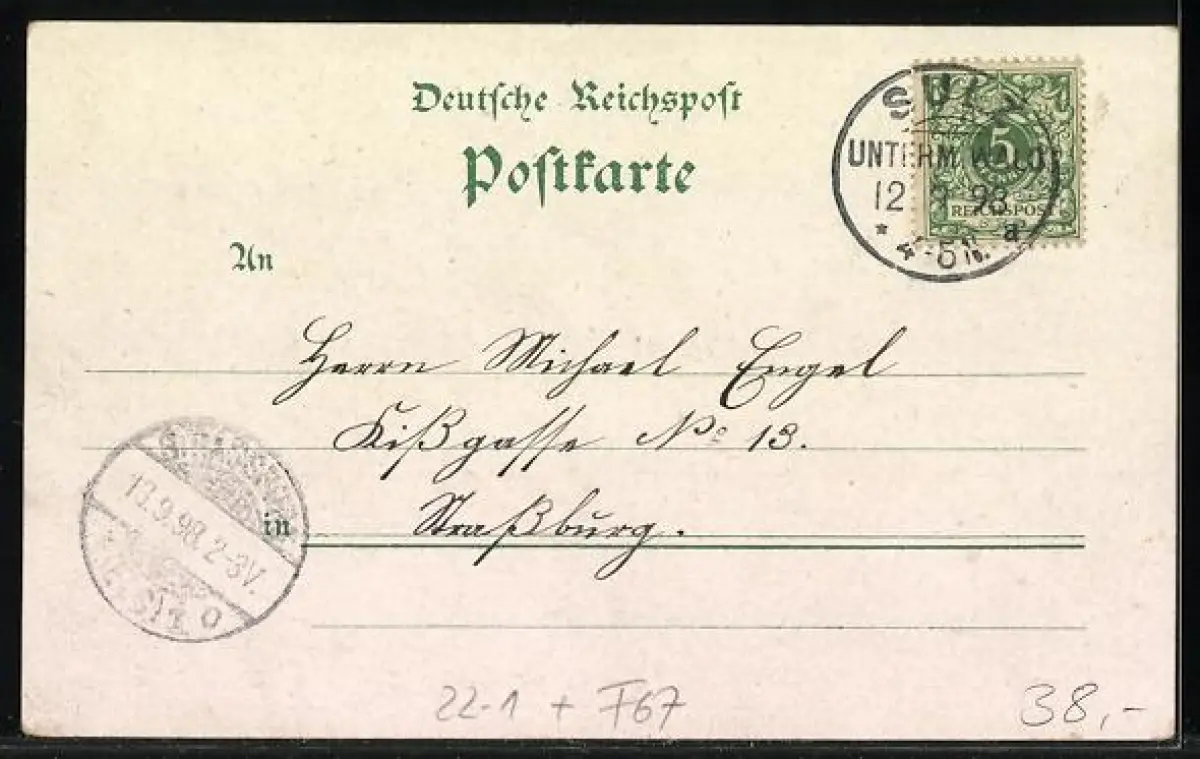 Deutsche Reichspost
Postkarte
SULZ
UNTERM WALD
12 9 98
* 4-5N. a
5
REICHSPOST
An
Herrn Michael Engel
Kißgasse No 13.
in Straßburg.
13.9.98. 2-3V.
22-1 + F67
38,-